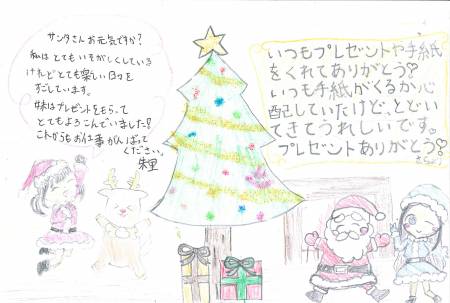 サンタさんお元気ですか?
私はとてもいそがしくしている
けれどとても楽しい日々を
すごしています。
妹はプレゼントをもらって
とてもよろこんでいました!
これからもお仕事がんばって
ください。
朱里
いつもプレゼントや手紙
をくれてありがとう♡
いつも手紙がくるか心
配していたけど、とどい
てきてうれしいです。
プレゼントありがとう♡